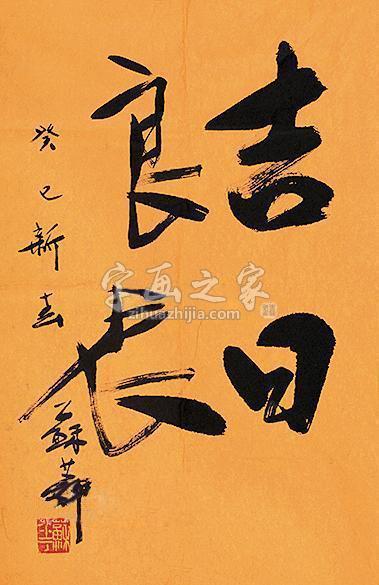 吉日
良辰
癸巳新春
蘇華
字画之家
zihuazhijia.com